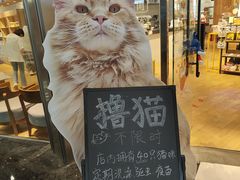 撸猫
不限时
店内拥有40只猫咪
定期洗澡 驱虫 疫苗